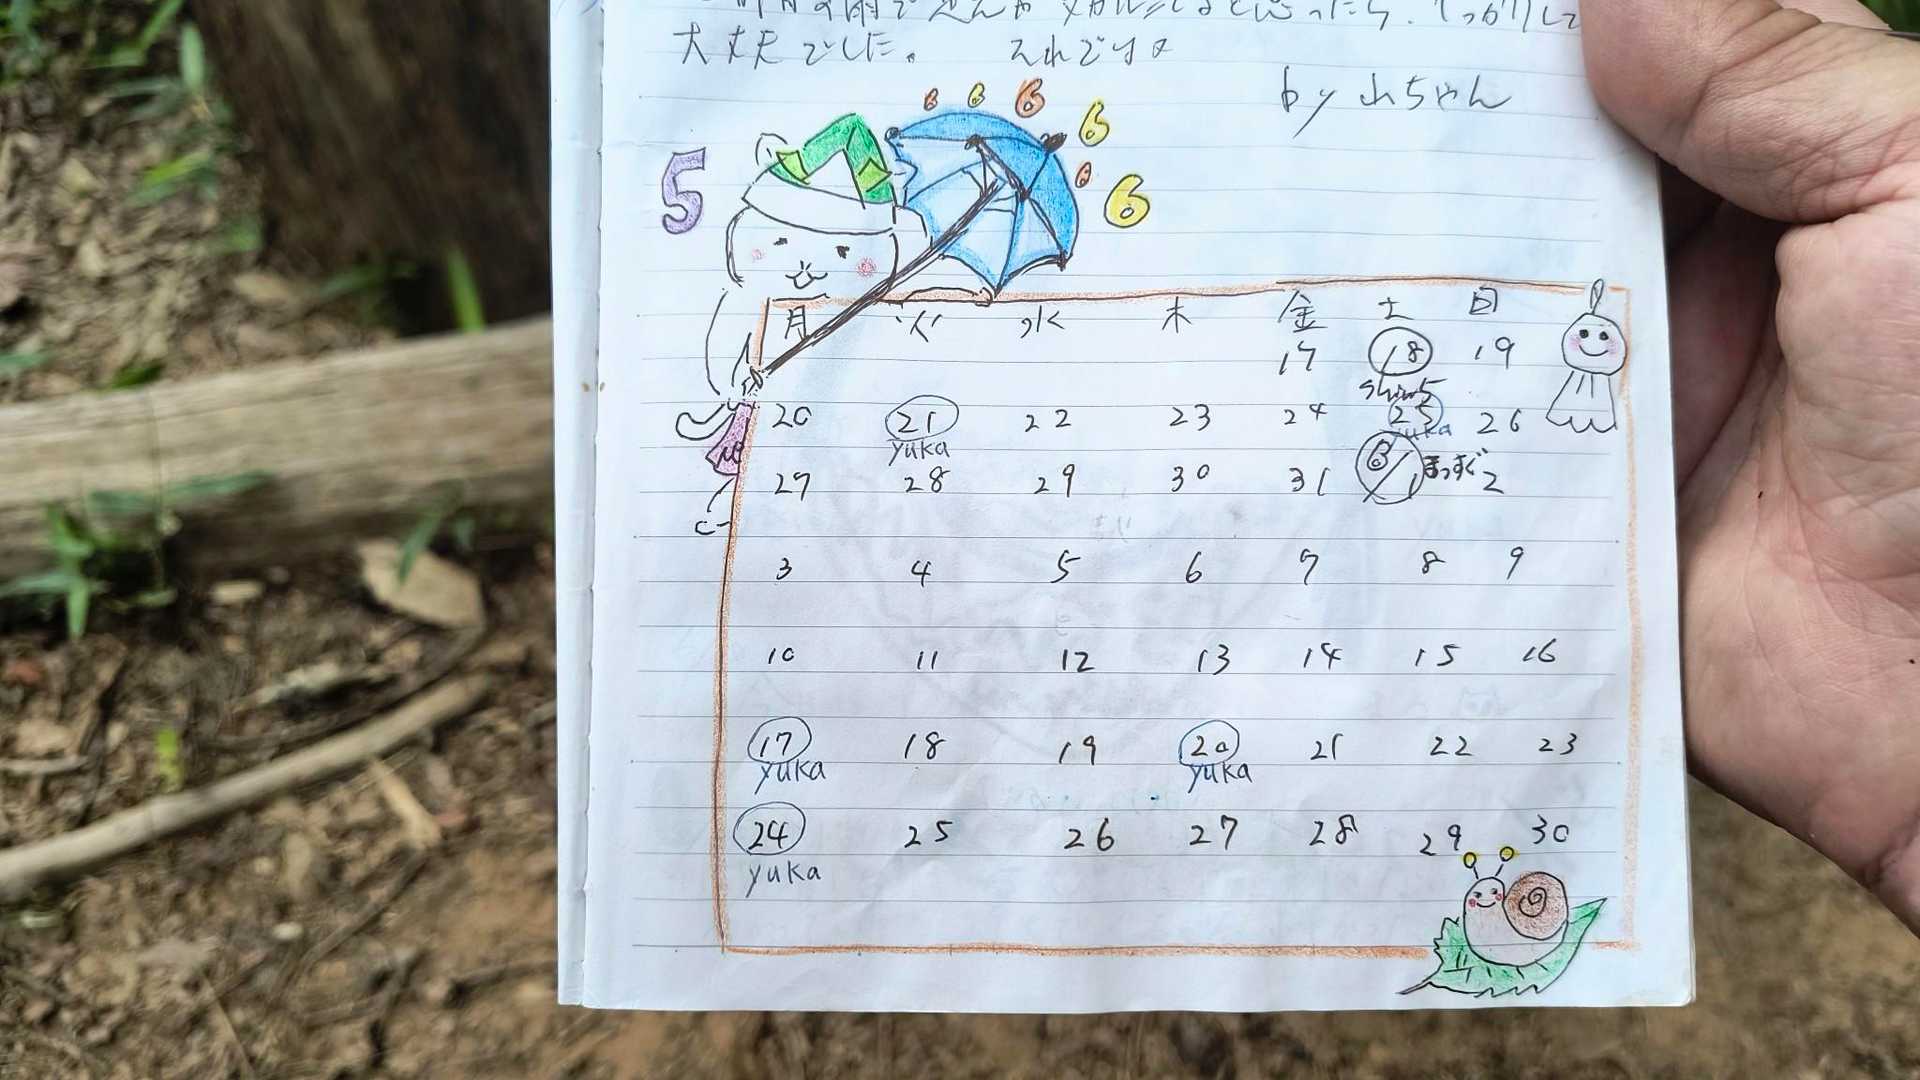 大丈夫でした。 それでは
by 山ちゃん
5 6 6 6 6 6 6
月 火 水 木 金 土 日
17 18 19
shin5
20 21 22 23 24 25 26
yuka yuka
27 28 29 30 31 6/1 まっすぐ 2
3 4 5 6 7 8 9
10 11 12 13 14 15 16
17 18 19 20 21 22 23
yuka yuka
24 25 26 27 28 29 30
yuka